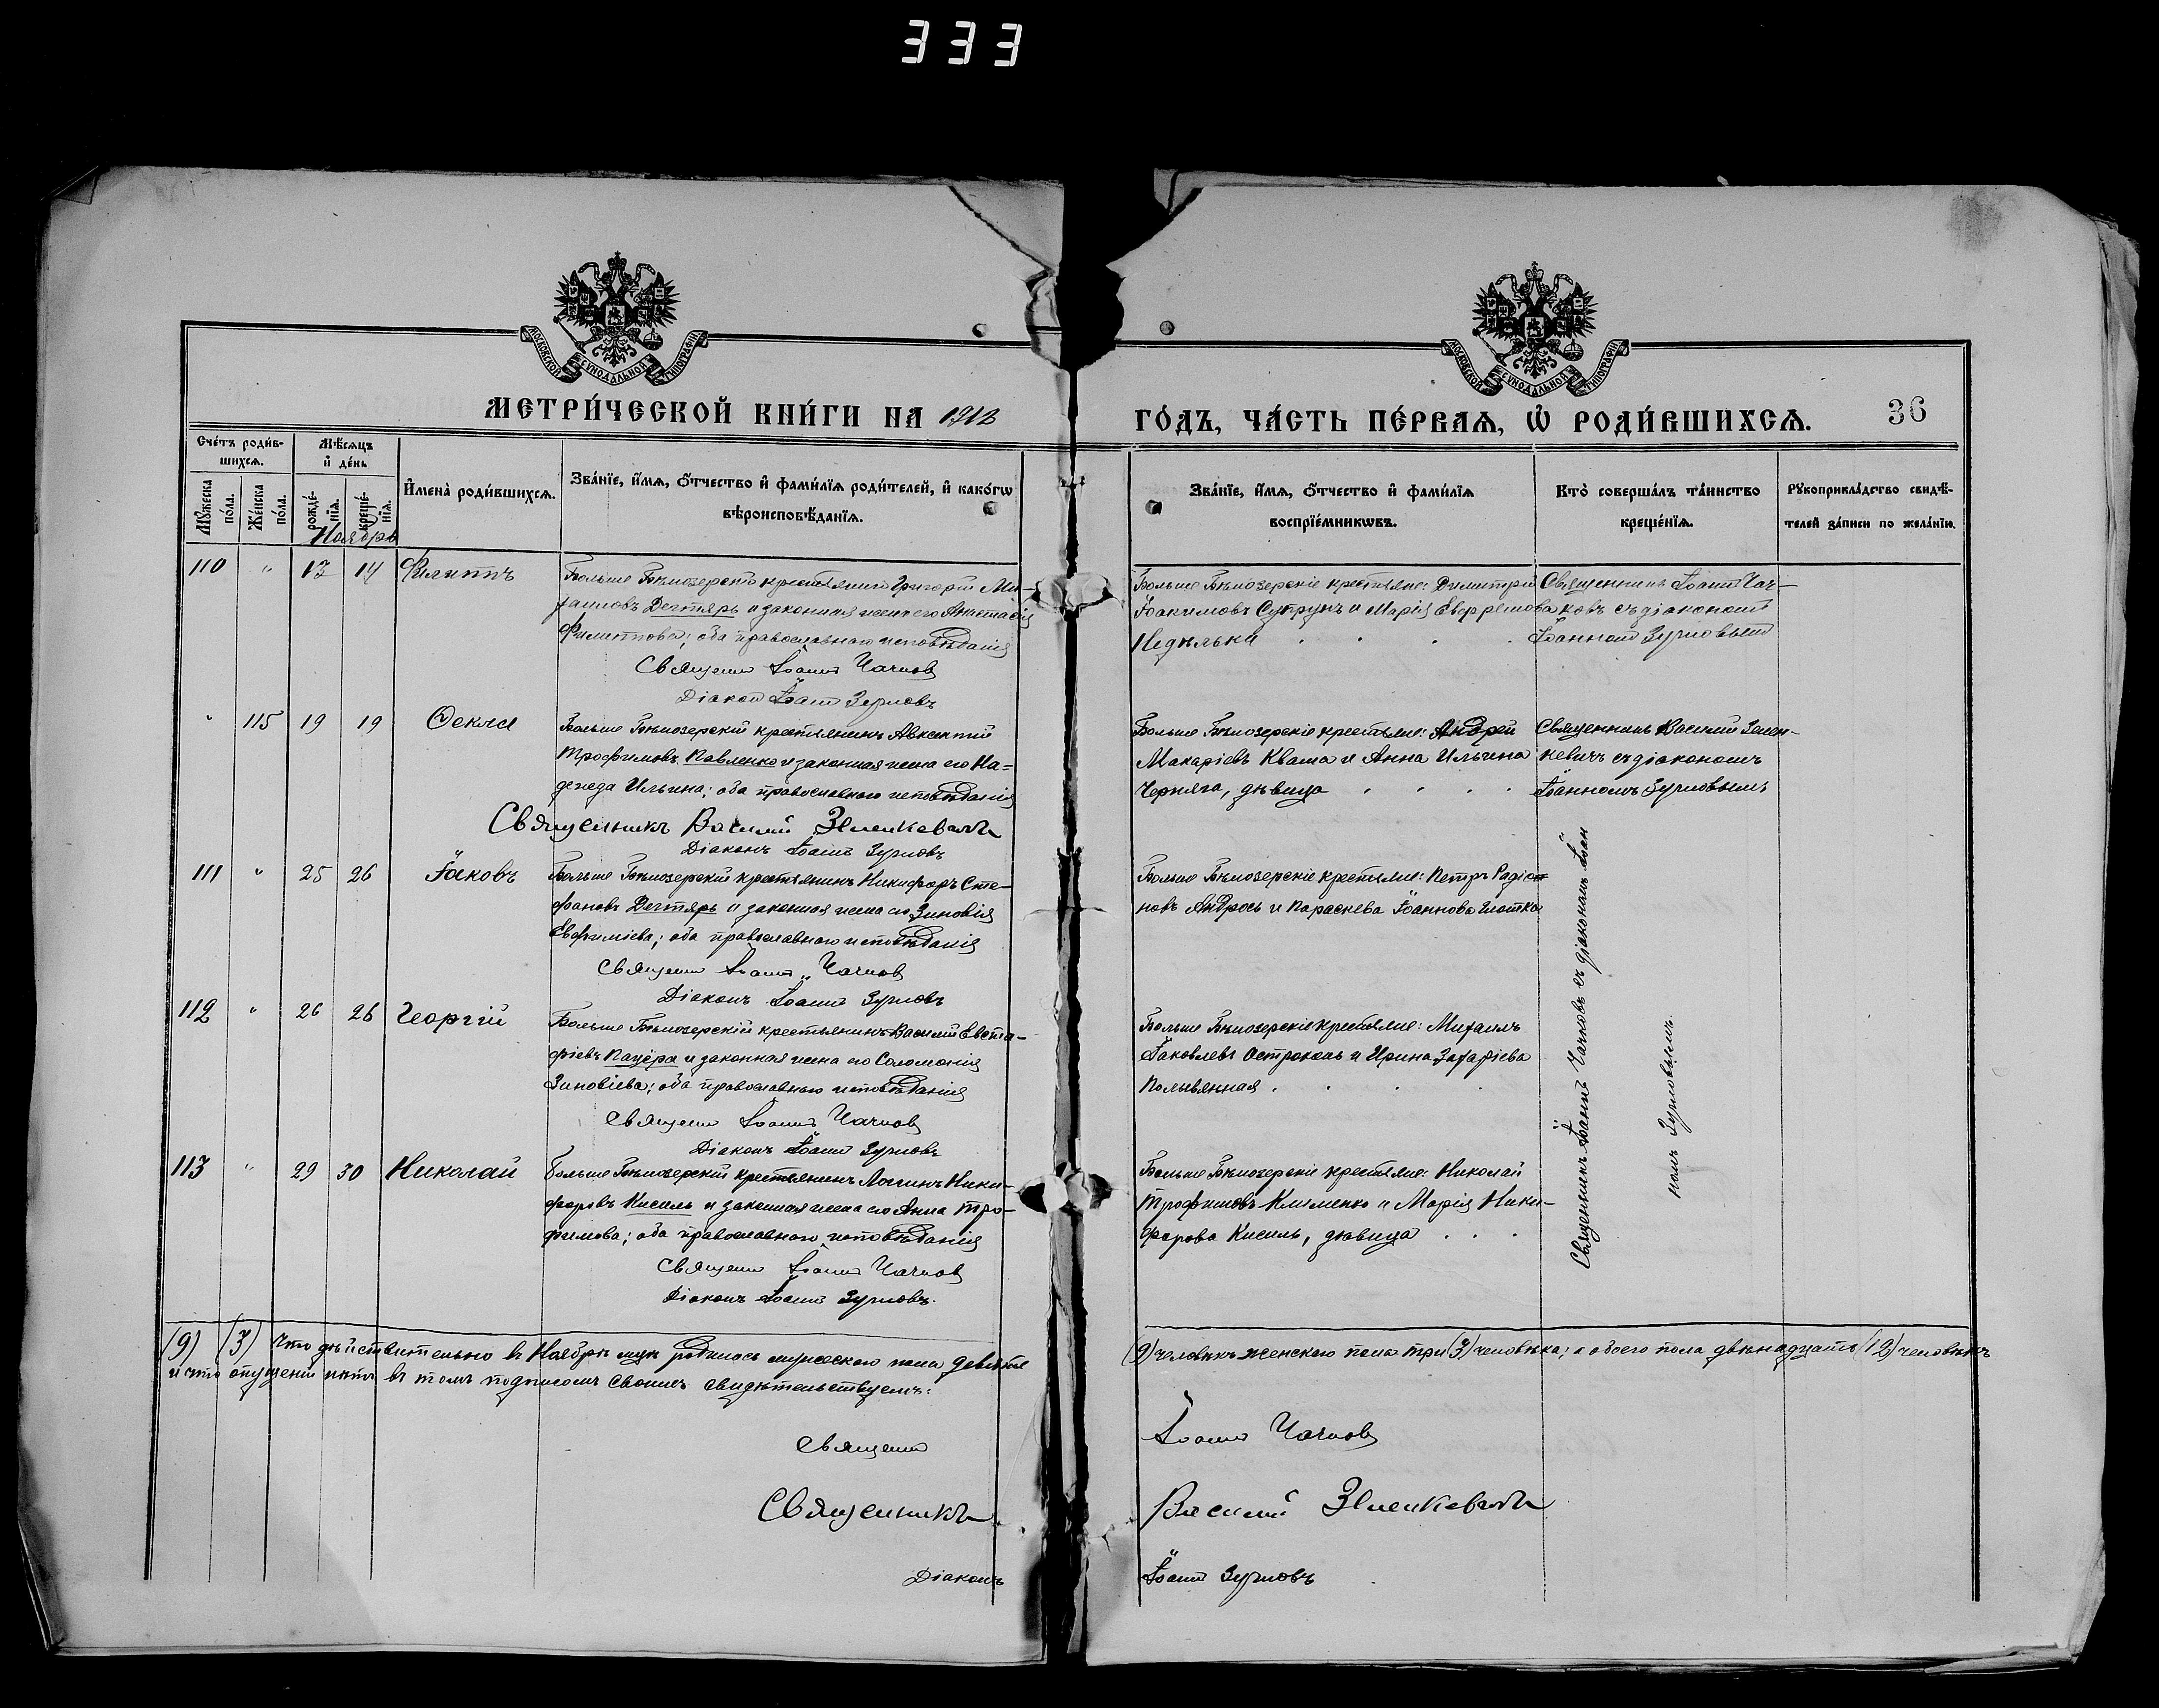 333
МОСКОВСКОЙ СѴНОДАЛЬНОЙ ТИПОГРАФІИ
МОСКОВСКОЙ СѴНОДАЛЬНОЙ ТИПОГРАФІИ
МЕТРИ́ЧЕСКОЙ КНИ́ГИ НА 1912
ГО́ДЪ, ЧА́СТЬ ПЕ́РВАѦ, Ѡ҆ РОДИ́ВШИХСѦ.
36
Сче́тъ роди́в-
шихсѧ.
Мѣ́сѧцъ
и҆ де́нь
Мꙋ́жеска по́ла.
Же́нска по́ла.
рожде́-нїѧ.
креще́-нїѧ.
И҆мена̀ роди́вшихсѧ.
Зва́нїе, и҆́мѧ, ѻ҆́тчество и҆ фами́лїѧ роди́телей, и҆ како́гѡ
вѣроисповѣ́данїѧ.
Зва́нїе, и҆́мѧ, ѻ҆́тчество и҆ фами́лїѧ
воспрїе́мникѡвъ.
Кто̀ соверша́лъ та́инство
креще́нїѧ.
Рꙋкоприкла́дство свидѣ́-
телей за́писи по жела́нїю.
Ноябрь
110 " 13 14 Филиппъ
Больше Бѣлозерскій крестьянинъ Григорій Ми-
хаиловъ Дегтярь и законная жена его Анастасія
Филиппова; оба православнаго исповѣданія
Священ Іоаннъ Чачковъ
Діаконъ Іоаннъ Зурновъ
Больше Бѣлозерскіе крестьяне: Димитрій
Іоакимовъ Супрунъ и Марія Евфремова
Недѣлька
Священникъ Іоаннъ Чач-
ковъ съ діакономъ
Іоанномъ Зурновымъ
" 115 19 19 Ѳекла
Больше Бѣлозерскій крестьянинъ Авксентій
Трофимовъ Павленко и законная жена его На=
дежда Ильина; оба православнаго исповѣданія
Священникъ Василій Зеленкевичъ
Діаконъ Іоаннъ Зурновъ
Больше Бѣлозерскіе крестьяне: Андрей
Макаріевъ Кваша и Анна Ильина
Черняга, дѣвица
Священникъ Василій Зелен-
кевичъ съ діакономъ
Іоанномъ Зурновымъ
111 " 25 26 Іаковъ
Больше Бѣлозерскій крестьянинъ Никифоръ Сте-
фановъ Дегтярь и законная жена его Зиновія
Евфиміева; оба православнаго исповѣданія
Священ Іоаннъ Чачковъ
Діаконъ Іоаннъ Зурновъ
Больше Бѣлозерскіе крестьяне: Петръ Радіо=
новъ Андрось и Параскева Іоаннова Глотка
Священникъ Іоаннъ Чачковъ съ діакономъ Іоан
номъ Зурновымъ.
112 " 26 26 Георгій
Больше Бѣлозерскій крестьянинъ Василій Евста-
фіевъ Пацёра и законная жена его Соломонія
Зиновіева; оба православнаго исповѣданія
Священ Іоаннъ Чачковъ
Діаконъ Іоаннъ Зурновъ
Больше Бѣлозерскіе крестьяне: Михаилъ
Іаковлевъ Остроконь и Ирина Захаріева
Полывянная
113 " 29 30 Николай
Больше Бѣлозерскій крестьянинъ Логинъ Ники-
форовъ Кисиль и законная жена его Анна Тро-
фимова; оба православнаго исповѣданія
Священ Іоаннъ Чачковъ
Діаконъ Іоаннъ Зурновъ.
Больше Бѣлозерскіе крестьяне: Николай
Трофимовъ Клименко и Марія Ники-
форова Кисиль, дѣвица
(9) (3) Что дѣйствительно въ Ноябрѣ мцѣ родилось мужескаго пола девять
(9) человѣкъ женскаго пола три (3) человѣка; а обоего пола двѣнадцать (12) человѣкъ
и что опущеній нѣтъ въ томъ подписомъ своимъ свидѣтельствуемъ:
Священ Іоаннъ Чачковъ
Священникъ Василій Зеленкевичъ
Діаконъ Іоаннъ Зурновъ